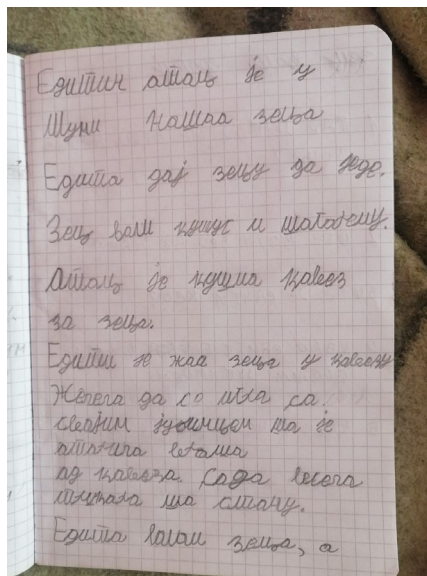 Едитин отац је у
Шуми нашао зеца
Едита дај зецу да једе.
Зец воли купус и шаргарепу.
Отац је купио кавез
за зеца.
Едити је жао зеца у кавезу
да со
својим је
отворила врата
од кавеза. Сада весело
по стану.
Едита воли зеца, а